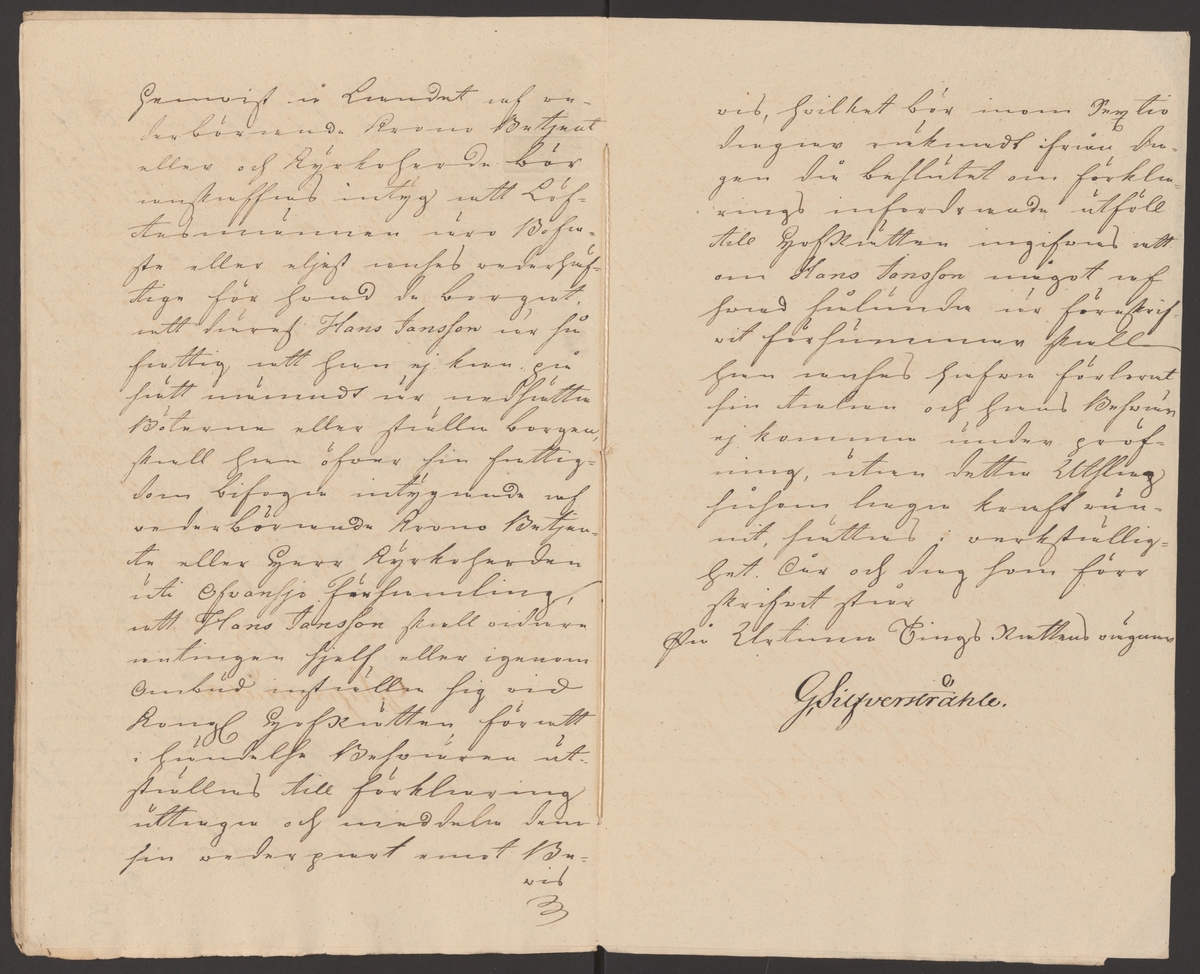 hemvist å Landet af ve-
derbörande Krono Betjent
eller och Kyrkoherde bör
anskaffas intyg att Löf-
tesmännen äro Bofa-
ste eller eljest anses vederhäf-
tige för hvad de borgat.
att dieræst Hans Jansson är så
fattig att han ej kan på
sätt nämndt är nedsätta
Böterna eller ställa borgen,
skall han öfver sin fattig-
dom bifoga intygande af
vederbörande Krono Betjen-
te eller Herr Kyrkoherden
uti Ofvansjö församling,
att Hans Jansson skall vidare
antingen sjelf eller igenom
Ombud inställa sig vid
Kongl HofRätten för att
i händelse Besvären ut-
ställas till förklaring
uttaga och meddela dem
sin vederpart emot Be-
vis
vis, hvilket bör inom Sextio
dagar räknadt ifrån Da-
gen då beslutet om förkla-
rings infordrande utföll
till HofRätten ingifvas att
om Hans Jansson något af
hvad sålunda är föreskrif-
vit försummar skall
han anses hafva förlorat
sin talan och hans Besvär
ej komma under pröf-
ning, utan detta Utslag
såsom laga kraft vun-
nit, sättas i verkställig-
het. År och dag som förr
skrifvit står
På Urtima Tings Rättens vägnar
G. Silfverstråhle.